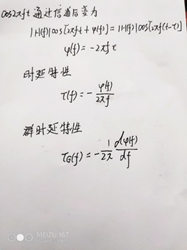 cos2πft 通过信道后变为
|H(f)|cos[2πft+φ(f)]=|H(f)|cos[2πf(t-τ)]
φ(f)=-2πfτ
时延特性
τ(f)=-φ(f)/2πf
群时延特性
τG(f)=-1/2π dφ(f)/df